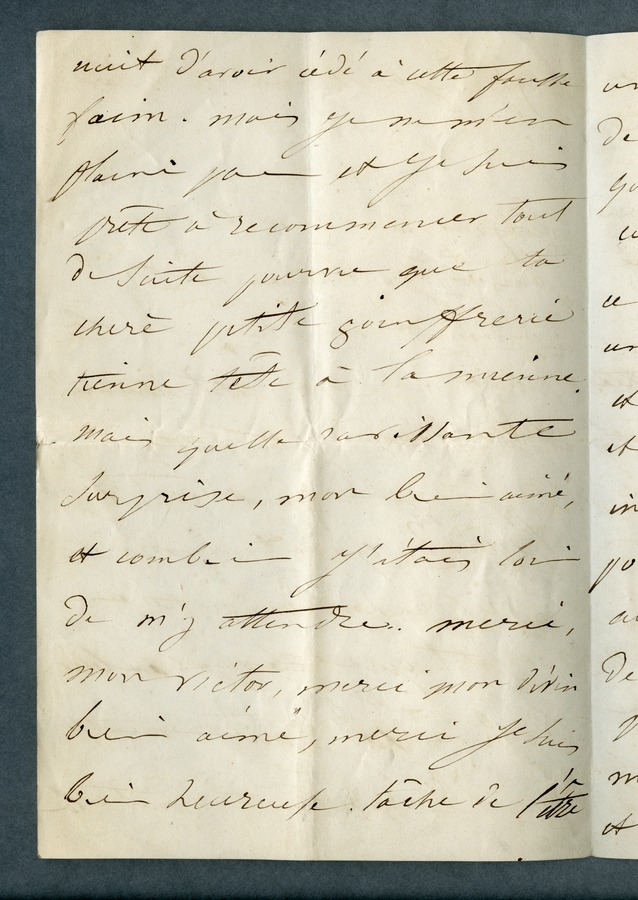 nuit d'avoir cédé à cette fausse
faim. mais je ne m'en
plains pas et je suis
prête à recommencer tout
de suite pourvu que ta
chère ptite goinffrerie
tienne tête à la mienne.
mais quelle ravissante
surprise, mon bien aimé,
et combien j'étais loin
de m'y attendre. merci,
mon victor, merci mon divin
bien aimé, merci je suis
bien heureuse. tâche de l'être
de
ce
un
et
et
in
po
de
m
et